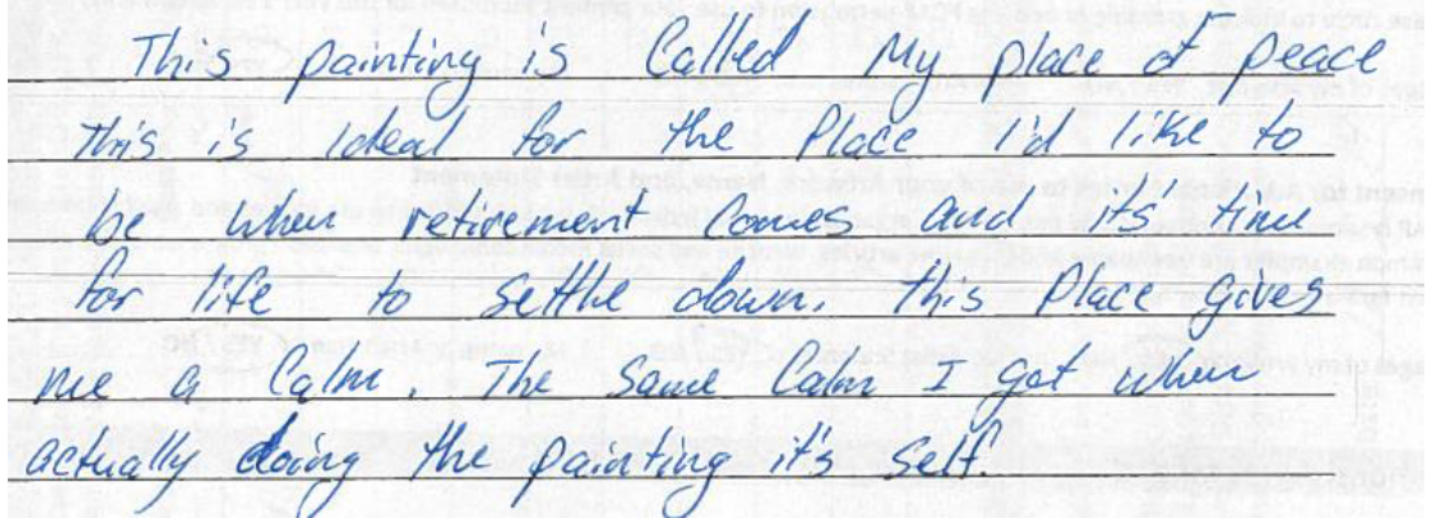 This painting is Called My place of peace
this is ideal for the Place I'd like to
be when retirement comes and its time
for life to settlhe down. this Place gives
me a Calm. The same Calm I get when
actually doing the painting it's self.